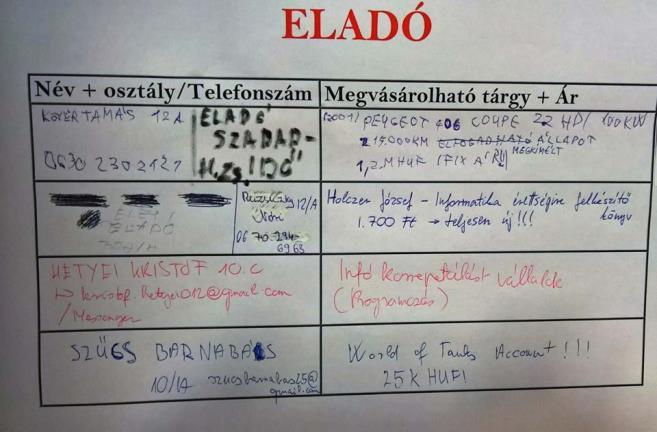 ELADÓ
Név + osztály/Telefonszám
Megvásárolható tárgy + Ár
KÖVÉR TAMÁS 12A
0630 230 2121
ELADÓ
(2001) PEUGEOT 406 COUPE 2.2 HDI 100KW
215.000KM ELFOGADHATÓ ÁLLAPOT
MEGKÍMÉLT
1,2MHUF (FIX ÁR!)
12/A
06 70-294-
6963
Holczer József - Informatika érettségire felkészítő
könyv
1.700 Ft → teljesen új!!!
HETYEI KRISTÓF 10.C
↳ kristof.hetyei012@gmail.com
/Messenger
Infó korrepetálást vállalok
(Programozás)
SZŰCS BARNABÁS
10/A szucsbarnabas25@
gmail.com
World of Tanks Account!!!
25K HUF!